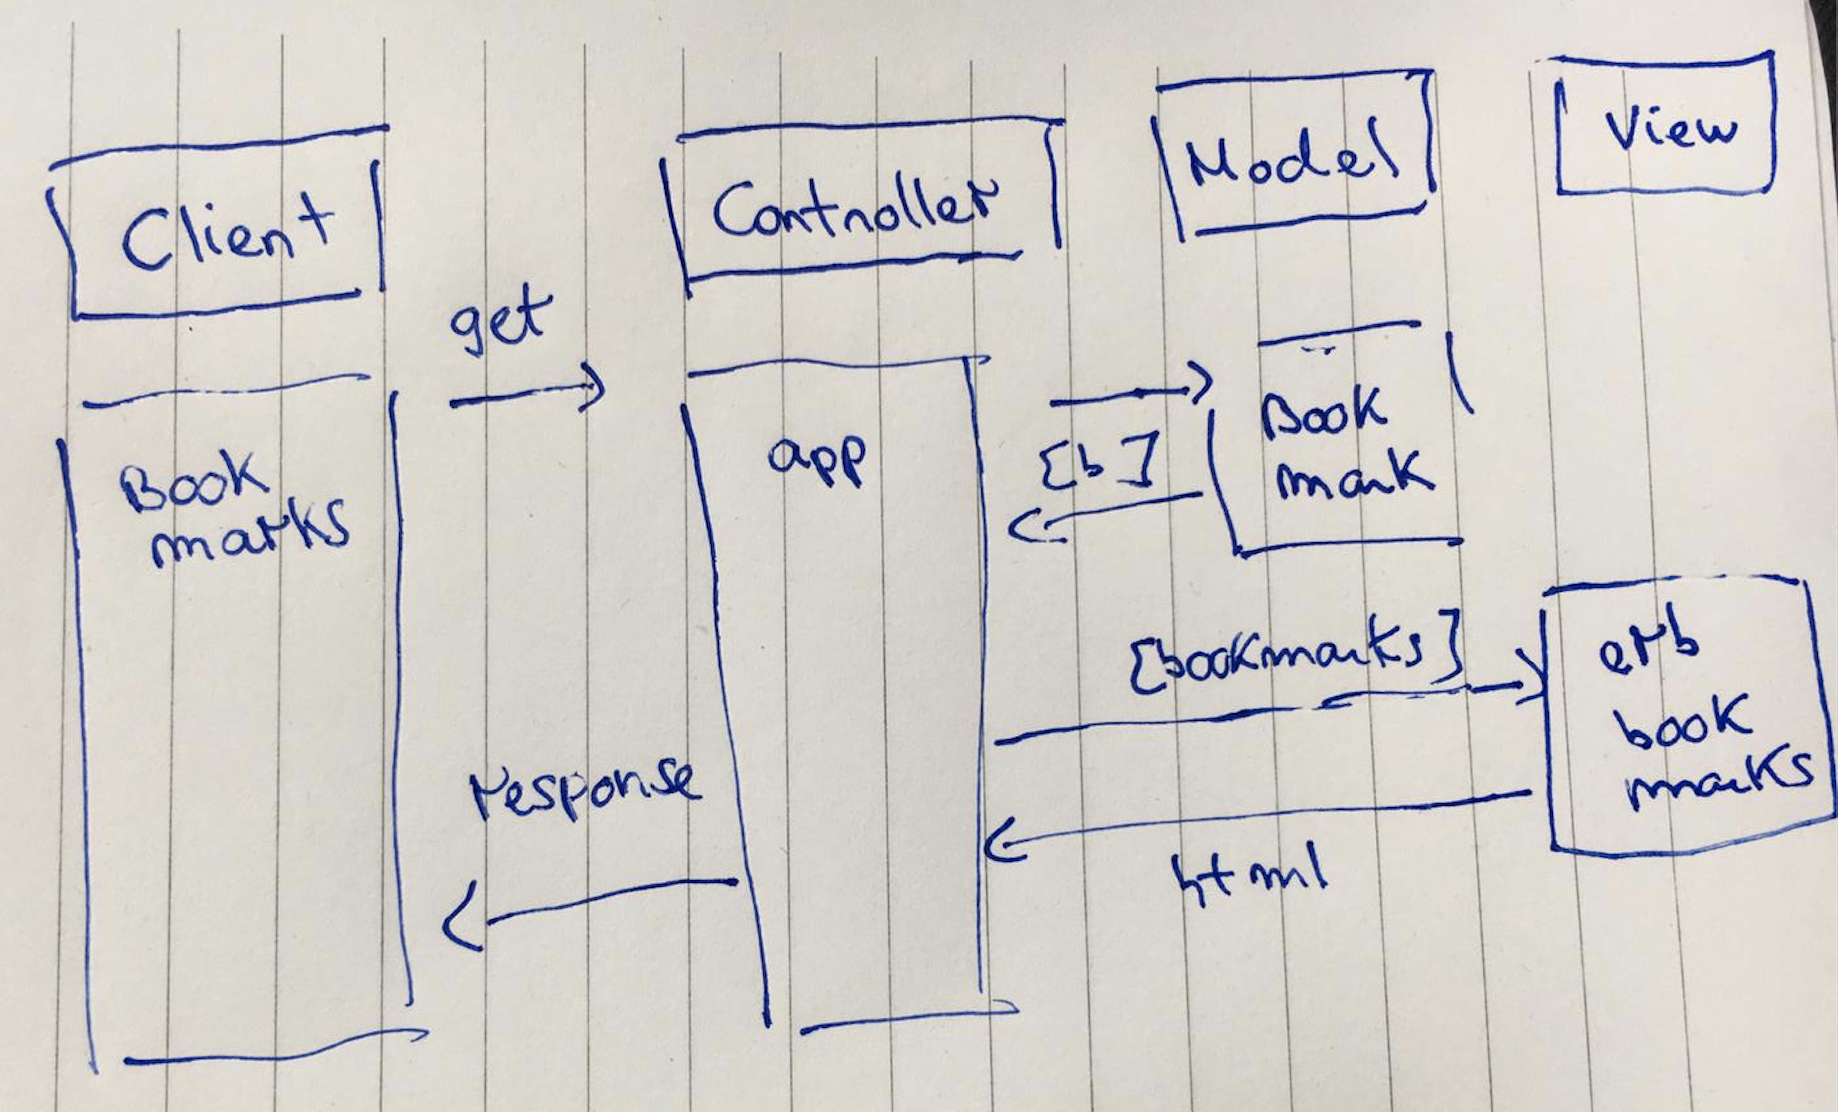 Client
Controller
Model
View
get
Book
marks
app
[b]
Book
mark
[bookmarks]
erb
book
marks
response
html